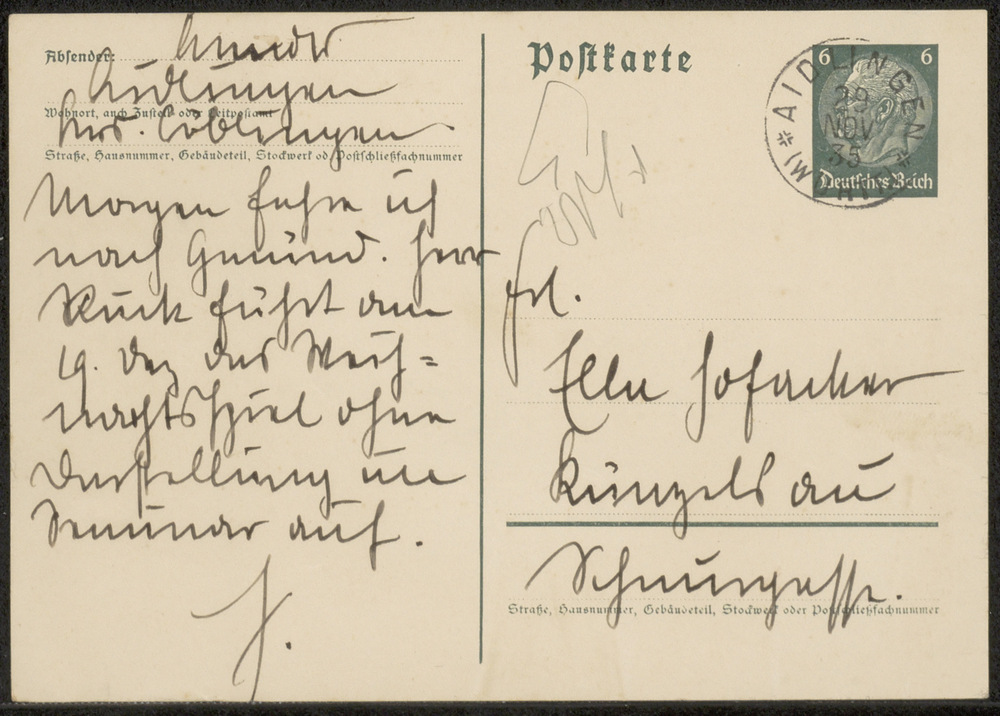 Absender:
Aidlingen
Wohnort, auch Zustell- oder Leitpostamt
Krs. Böblingen
Straße, Hausnummer, Gebäudeteil, Stockwerk od Postschließfachnummer
Morgen fahre ich
nach Gmünd. Herr
Ruck führt am
19. Dez das Weih=
nachtsspiel ohne
Darstellung im
Seminar auf.
H.
Postkarte
6 6
Deutsches Reich
AIDLINGEN
29
NOV
35
Frl.
Ella Hofacker
Künzelsau
Schnurgasse.
Straße, Hausnummer, Gebäudeteil, Stockwerk oder Postschließfachnummer